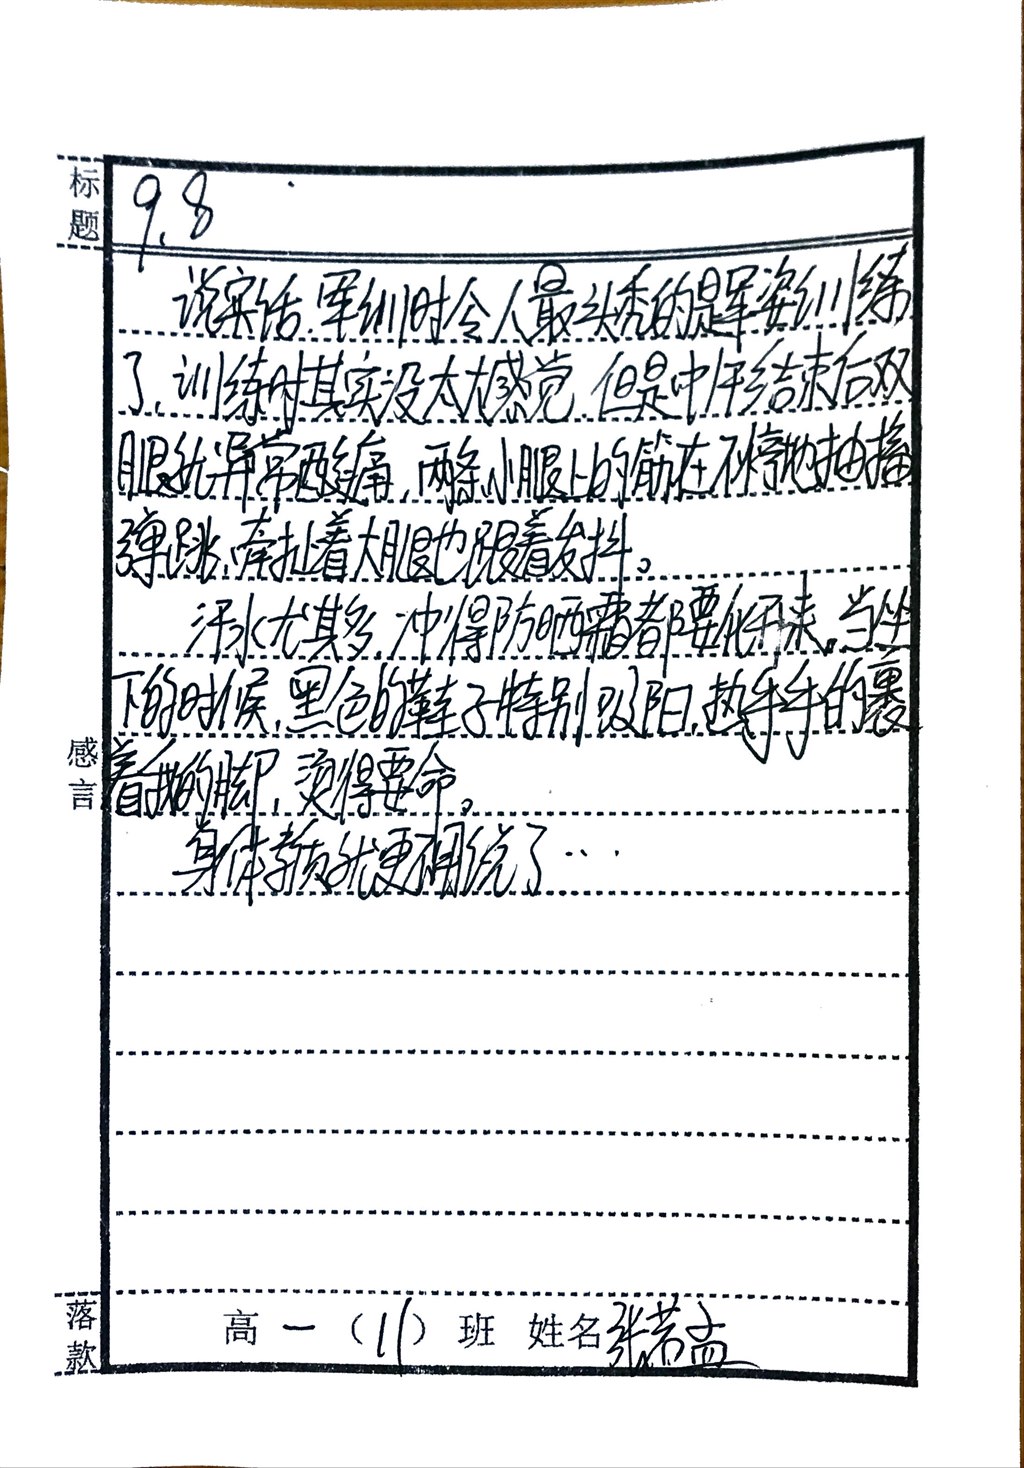 标题
9.8
说实话,军训时令人最头秃的是军姿训练
了,训练时其实没太大感觉,但是中午结束后双
腿就异常酸痛,两条小腿上的筋在不停地抽搐
弹跳,牵扯着大腿也跟着发抖。
汗水尤其多,冲得防晒霜都要化开来。当坐
下的时候,黑色的鞋子特别吸阳,热乎乎的裹
感言
着我的脚,烫得要命。
身体素质就更不用说了…
落款
高一(11)班 姓名张若孟